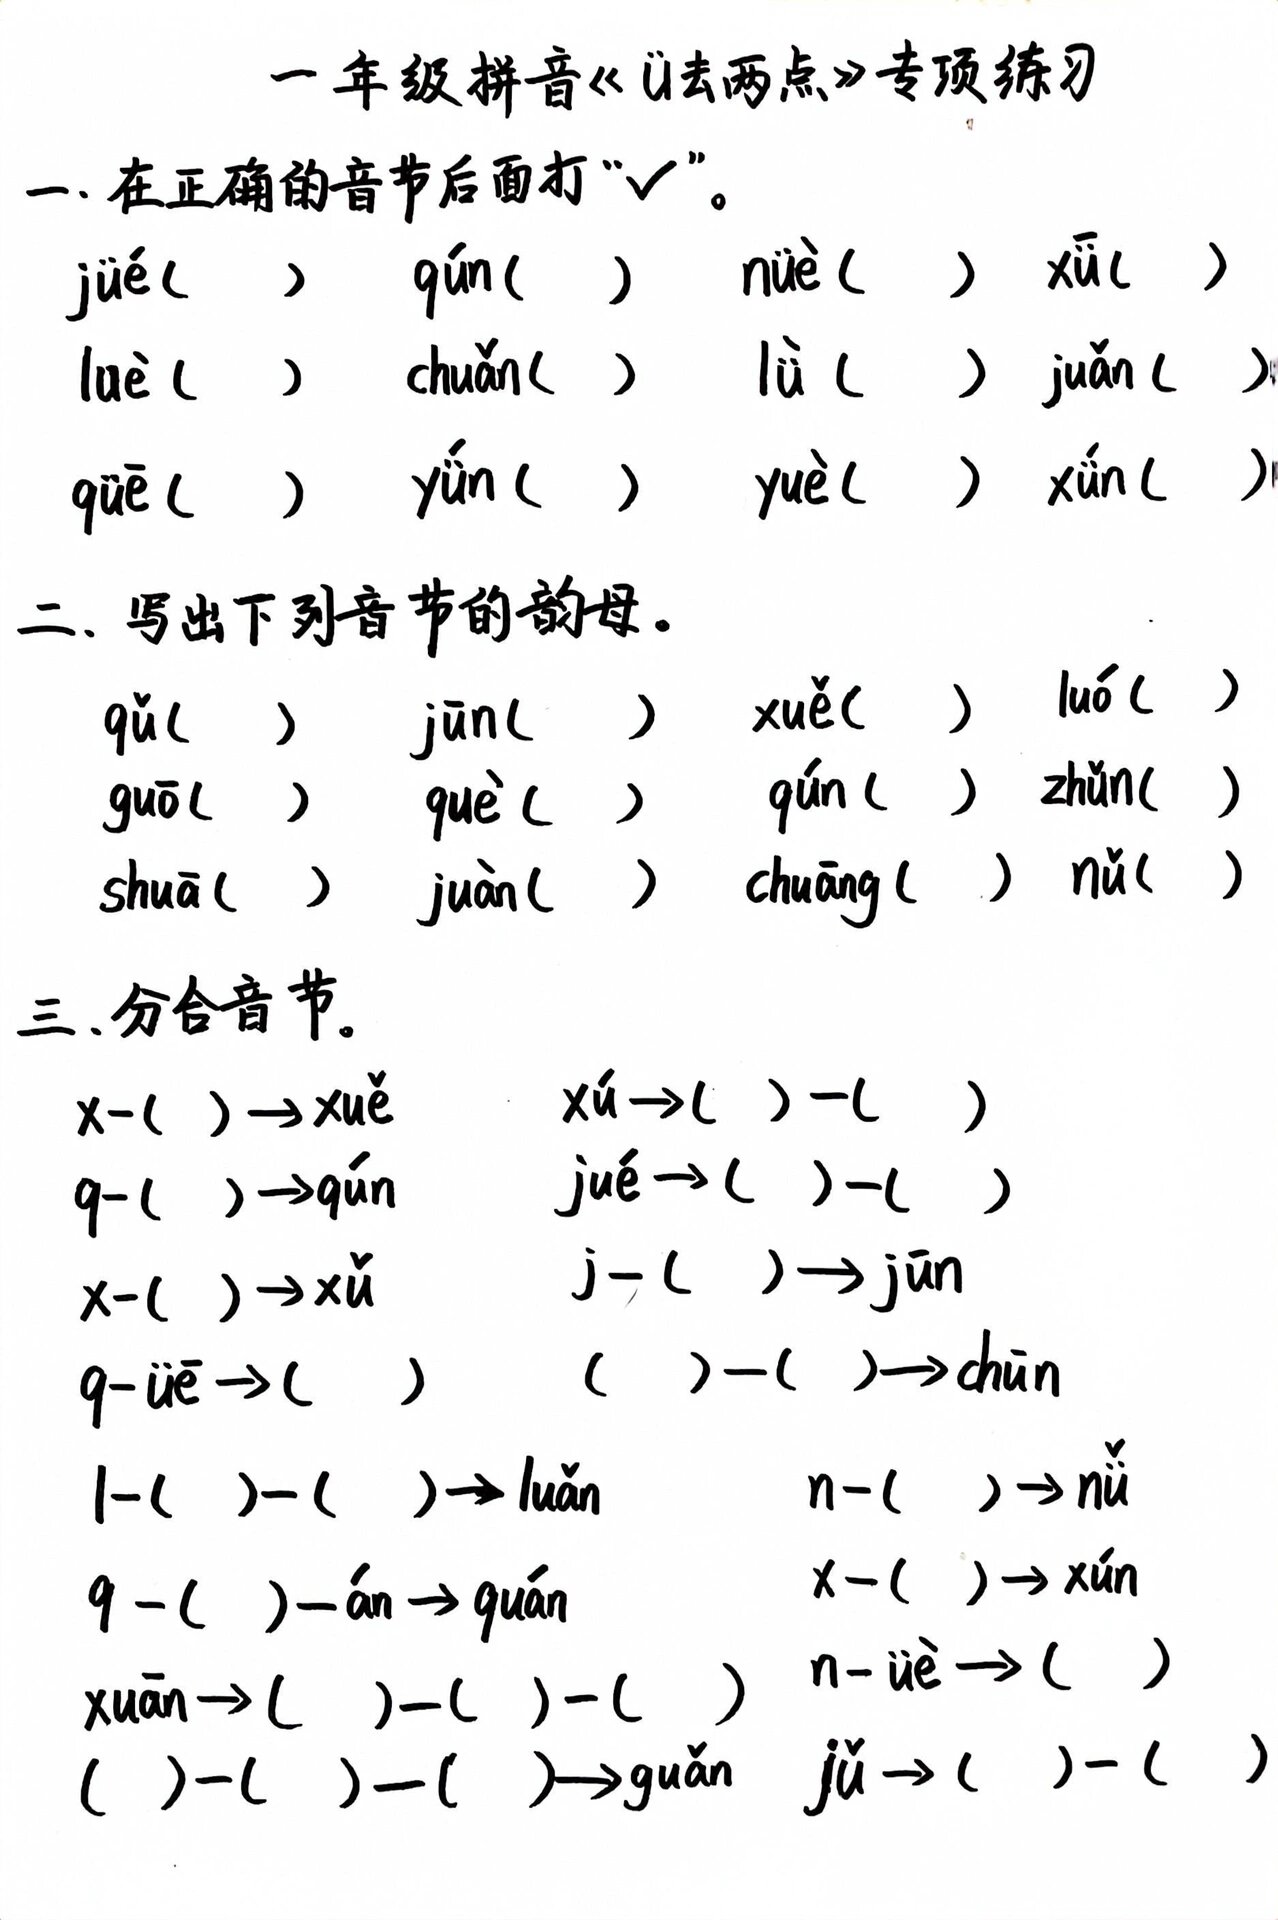 一年级拼音《ü去两点》专项练习
一.在正确的音节后面打“✓”。
jüé( ) qún( ) nüè( ) xǖ( )
luè( ) chuǎn( ) lǜ( ) juǎn( )
qüē( ) yǘn( ) yuè( ) xǘn( )
二、写出下列音节的韵母.
qǔ( ) jūn( ) xuě( ) luó( )
guō( ) què( ) qún( ) zhǔn( )
shuā( ) juàn( ) chuāng( ) nǔ( )
三.分合音节。
x-( )→xuě xú→( )-( )
q-( )→qún jué→( )-( )
x-( )→xǔ j-( )→jūn
q-üē→( ) ( )-( )→chūn
l-( )-( )→luǎn n-( )→nǚ
q-( )-án→quán x-( )→xún
xuān→( )-( )-( ) n-üè→( )
( )-( )-( )→guǎn jǔ→( )-( )